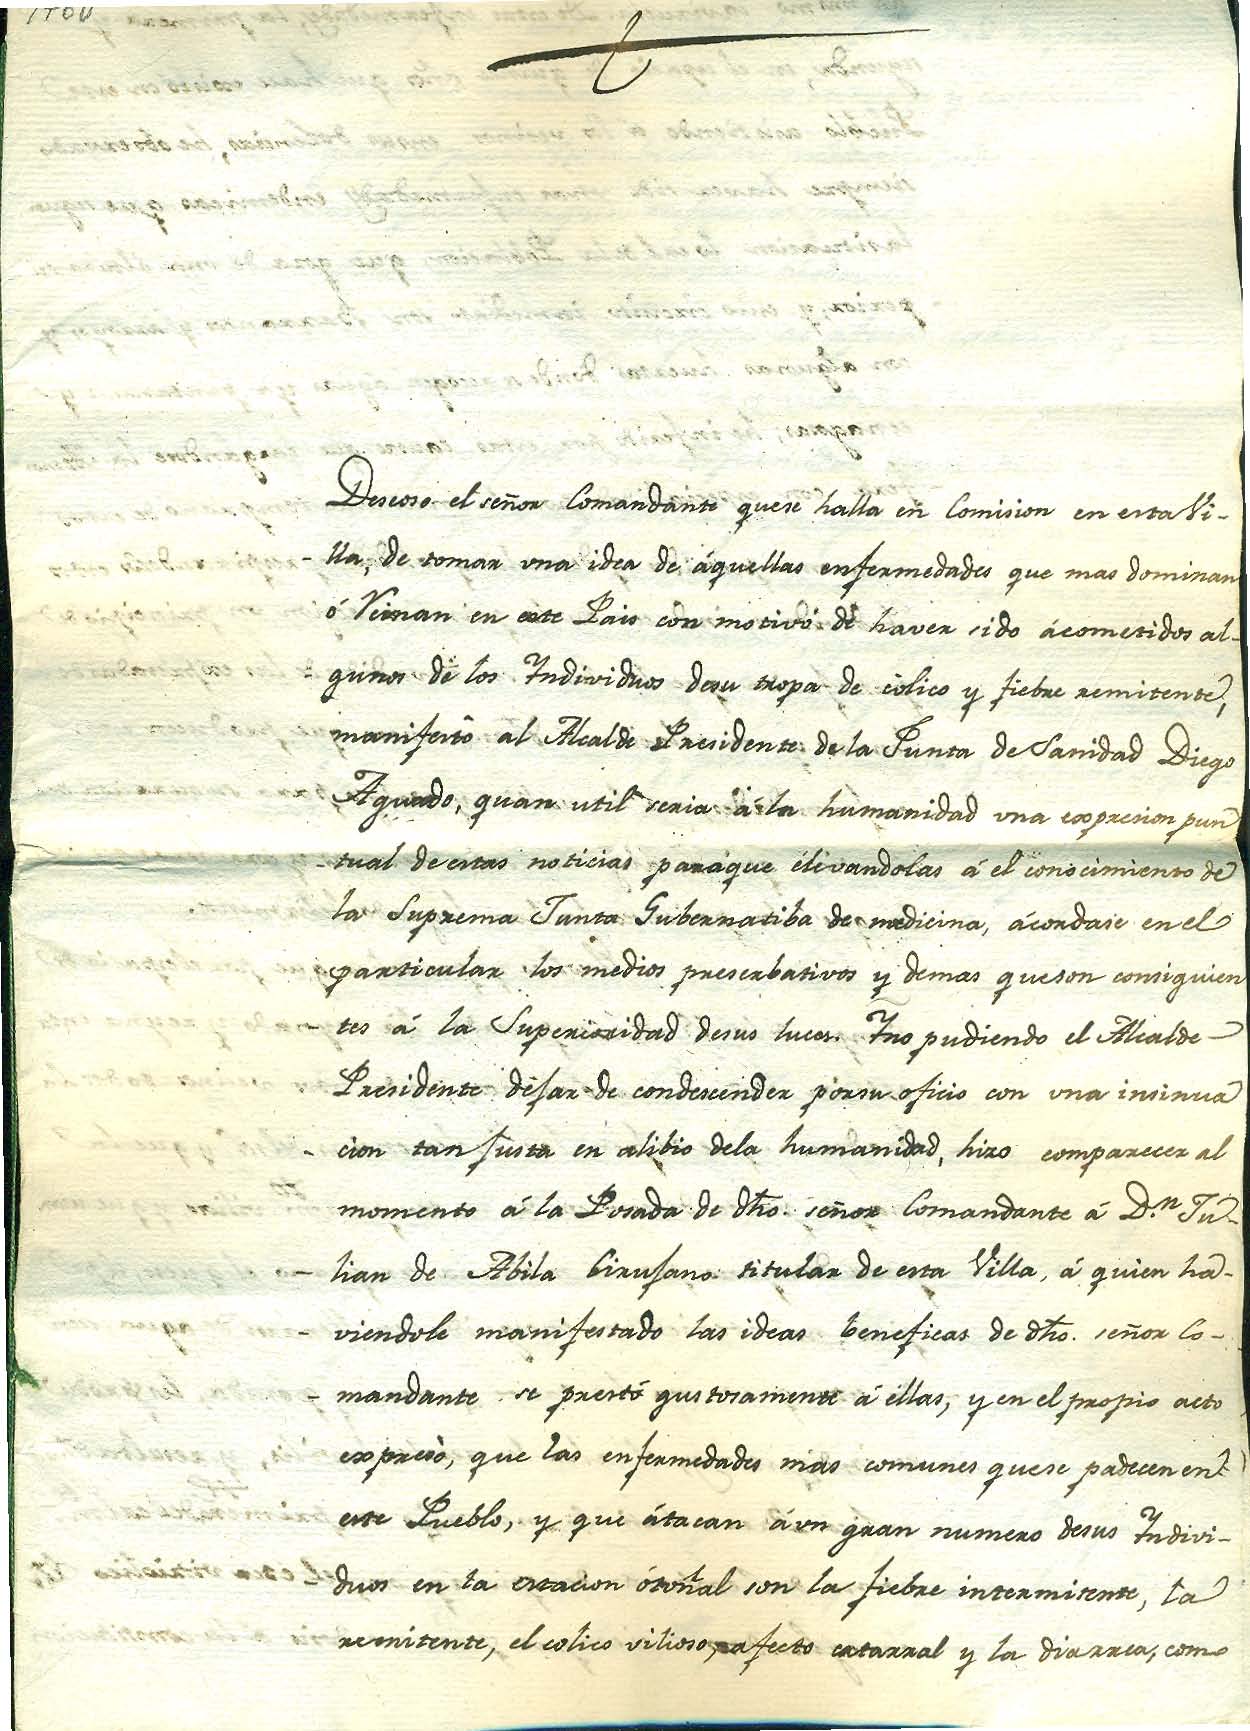 Deseoso el señor Comandante quese halla en Comision en esta Vi-
- lla, de tomar una idea de áquellas enfermedades que mas dominan
ó Reinan en este Pais con motivó de haver sido ácometidos al-
- gunos de los Individuos desu tropa de cólico y fiebre remitente,
manifestó al Alcalde Presidente de la Junta de Sanidad Diego
Aguado, quan util seria á la humanidad una expresion pun
- tual de estas noticias paraque élevandolas á el conocimiento de
la Suprema Junta Gubernatiba de medicina, ácordase en el
particular los medios preserbativos y demas queson consiguien
- tes á la Superioridad desus luces. Yno pudiendo el Alcalde
Presidente dejar de condescender porsu oficio con una insinua
- cion tan justa en alibio dela humanidad, hizo comparecer al
momento á la Posada de dho. señor Comandante á D.n Ju-
- lian de Abila Cirujano titular de esta Villa, á quien ha-
- viendole manifestado las ideas beneficas de dho. señor Co-
- mandante se prestó gustosamente á éllas, y en el propio acto
expresò, que las enfermedades mas comunes quese padecen en
este Pueblo, y que átacan áun gran numero desus Indivi-
duos en la estacion ótoñal son la fiebre intermitente, la
remitente, el colico vilioso, afecto catarral y la diarrea, como